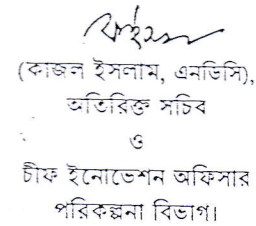 (কাজল ইসলাম, এনডিসি),
অতিরিক্ত সচিব
ও
চীফ ইনোভেশন অফিসার
পরিকল্পনা বিভাগ।